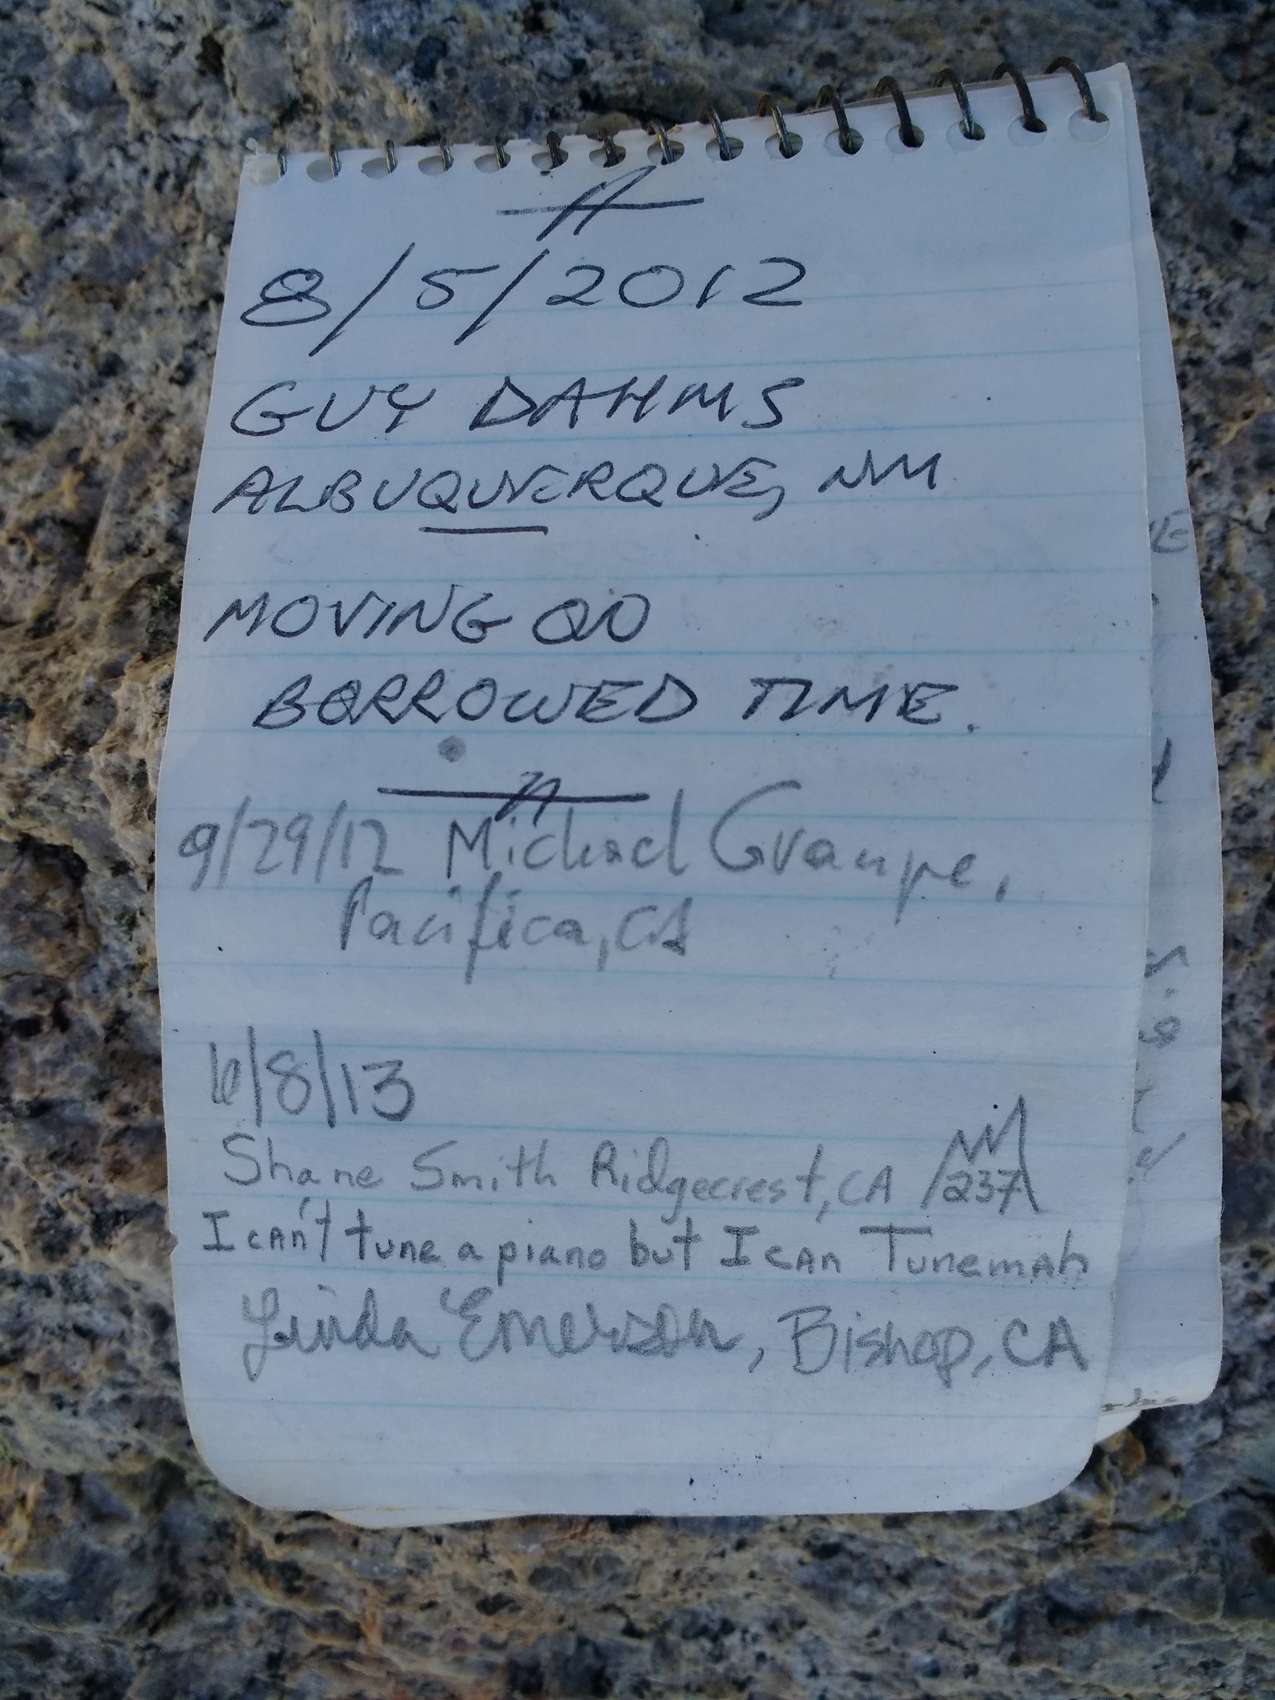 8/5/2012
GUY DAHMS
ALBUQUERQUE, NM
MOVING ON
BORROWED TIME.
9/29/12 Michael Graupe,
Pacifica, CA
6/8/13
Shane Smith Ridgecrest, CA 237
I can't tune a piano but I can Tunemah
Linda Emerson, Bishop, CA